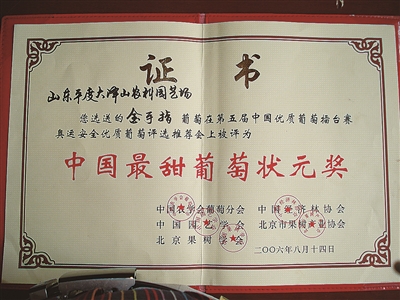 证书
山东平度大泽山农科园艺场
您选送的 金手指 葡萄在第五届中国优质葡萄擂台赛
奥运安全优质葡萄评选推荐会上被评为
中国最甜葡萄状元奖
中国农学会葡萄分会 中国经济林协会
中国园艺学会 北京市果树产业协会
北京果树学会
二〇〇六年八月十四日